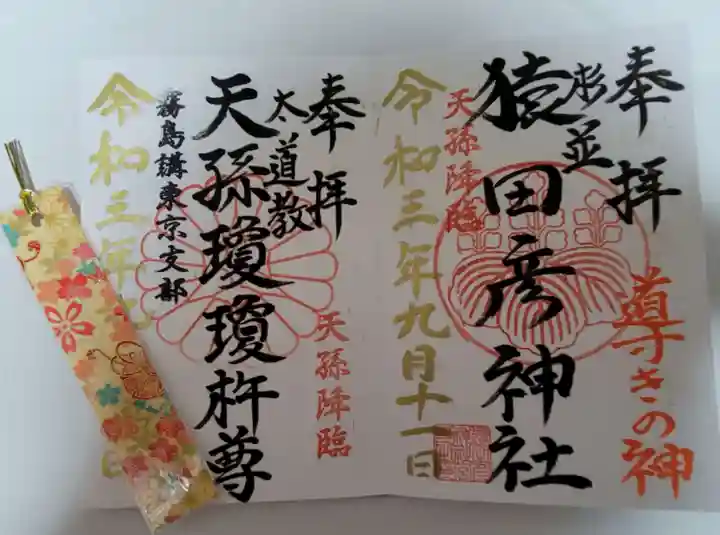 奉拝
導きの神
杉並
猿田彦神社
天孫降臨
令和三年九月十一日
奉拝
天孫降臨
太道教
天孫瓊瓊杵尊
霧島講東京支部
令和三年
日